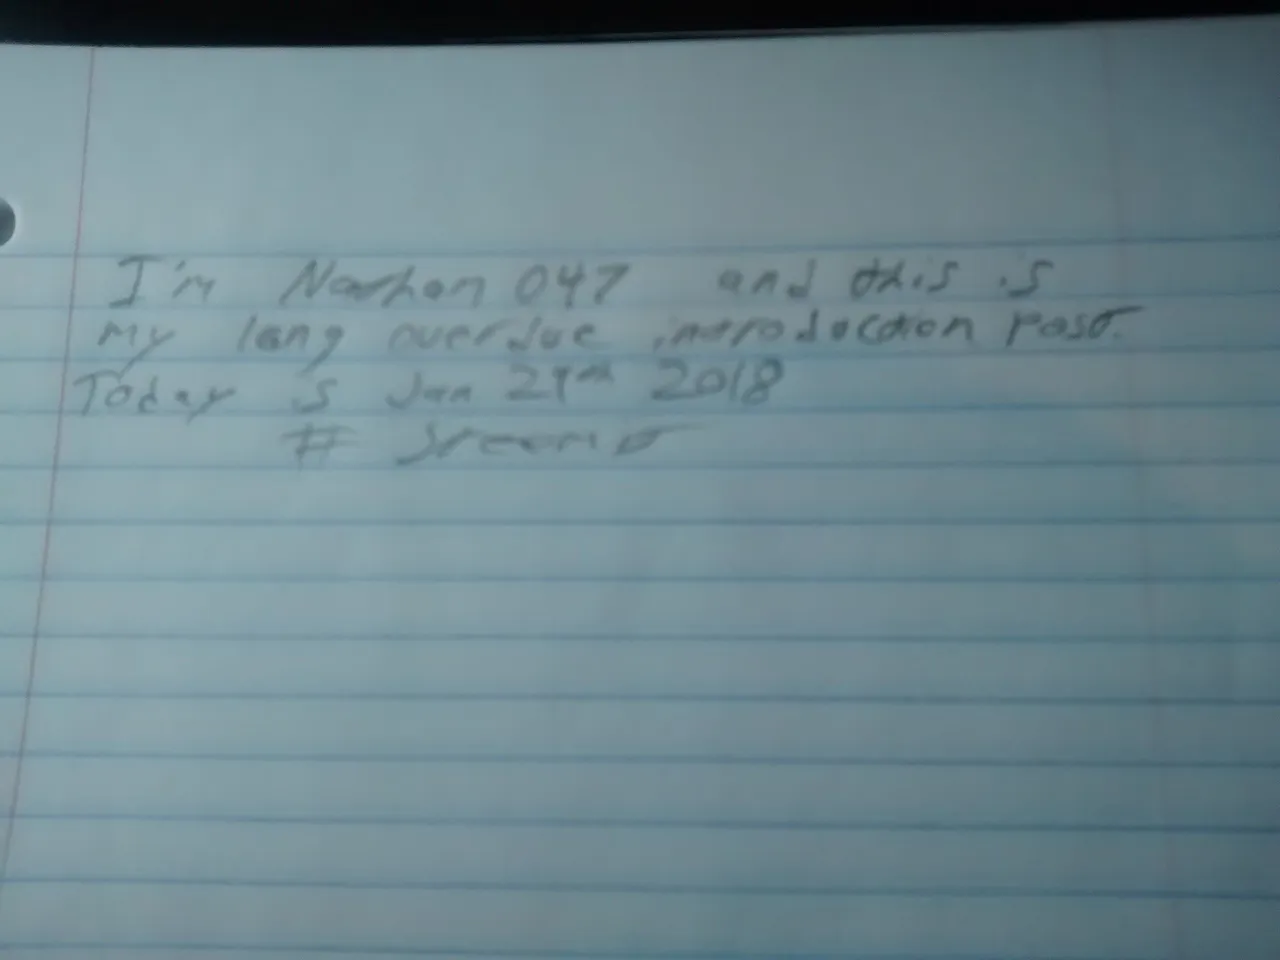 I'm Nathan 047 and this is
my long overdue introduction post.
Today is Jan 29th 2018
# steemit